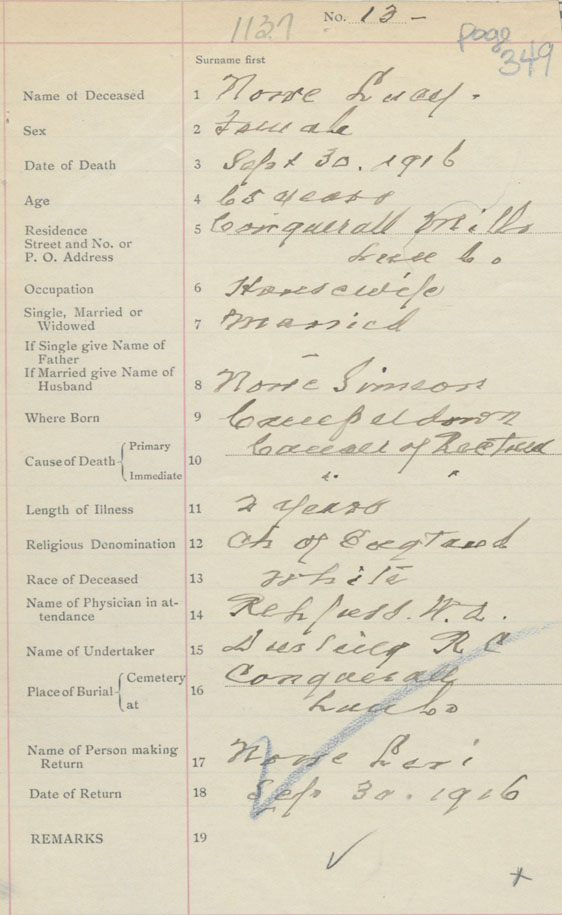 1137
No. 13 -
page
349
Surname first
Name of Deceased 1 Nowe Lucy.
Sex 2 Female
Date of Death 3 Sept 30. 1916
Age 4 65 years
Residence 5 Conquerall Mills
Street and No. or
P. O. Address Lun Co
Occupation 6 Housewife
Single, Married or
Widowed 7 Married
If Single give Name of
Father —
If Married give Name of
Husband 8 Nowe Simeon
Where Born 9 Campbeldown
Cause of Death Primary 10 Cancer of Rectum
Immediate " "
Length of Illness 11 2 years
Religious Denomination 12 Ch of England
Race of Deceased 13 White
Name of Physician in at-
tendance 14 Rehfuss. W. N.
Name of Undertaker 15 R C
Place of Burial Cemetery 16 Conquerall
at Lun Co
Name of Person making
Return 17 Nowe Levi
Date of Return 18 Sep 30. 1916
REMARKS 19